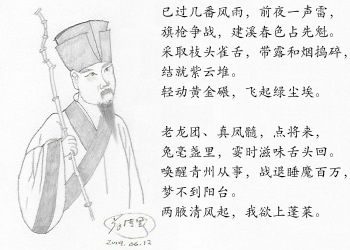 已过几番风雨，前夜一声雷，
旗枪争战，建溪春色占先魁。
采取枝头雀舌，带露和烟捣碎，
结就紫云堆。
轻动黄金碾，飞起绿尘埃。
老龙团、真凤髓，点将来，
兔毫盏里，霎时滋味舌头回。
唤醒青州从事，战退睡魔百万，
梦不到阳台。
两腋清风起，我欲上蓬莱。
2019.06.12